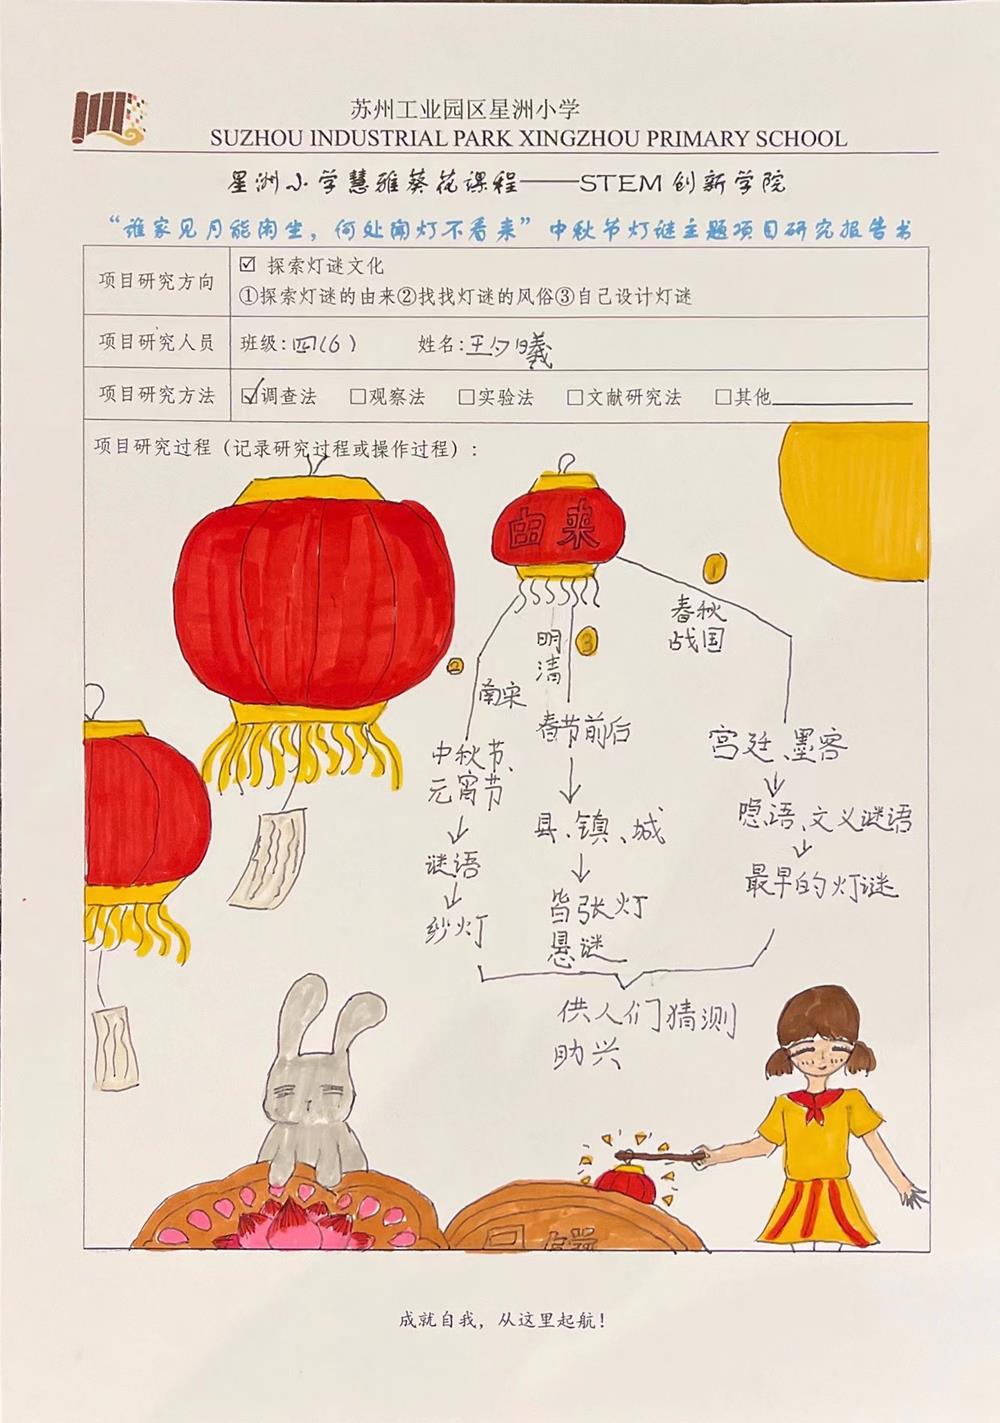 苏州工业园区星洲小学
SUZHOU INDUSTRIAL PARK XINGZHOU PRIMARY SCHOOL
星洲小学慧雅葵花课程——STEM创新学院
“谁家见月能闲坐，何处闻灯不看来”中秋节灯谜主题项目研究报告书
项目研究方向
☑ 探索灯谜文化
①探索灯谜的由来②找找灯谜的风俗③自己设计灯谜
项目研究人员
班级:四(6) 姓名:王夕曦
项目研究方法
☑调查法 □观察法 □实验法 □文献研究法 □其他
项目研究过程（记录研究过程或操作过程）:
由来
①
春秋
战国
宫廷、墨客
隐语、文义谜语
最早的灯谜
②
南宋
中秋节、
元宵节
谜语
纱灯
③
明
清
春节前后
县、镇、城
皆张灯
悬谜
供人们猜测
助兴
成就自我，从这里起航！